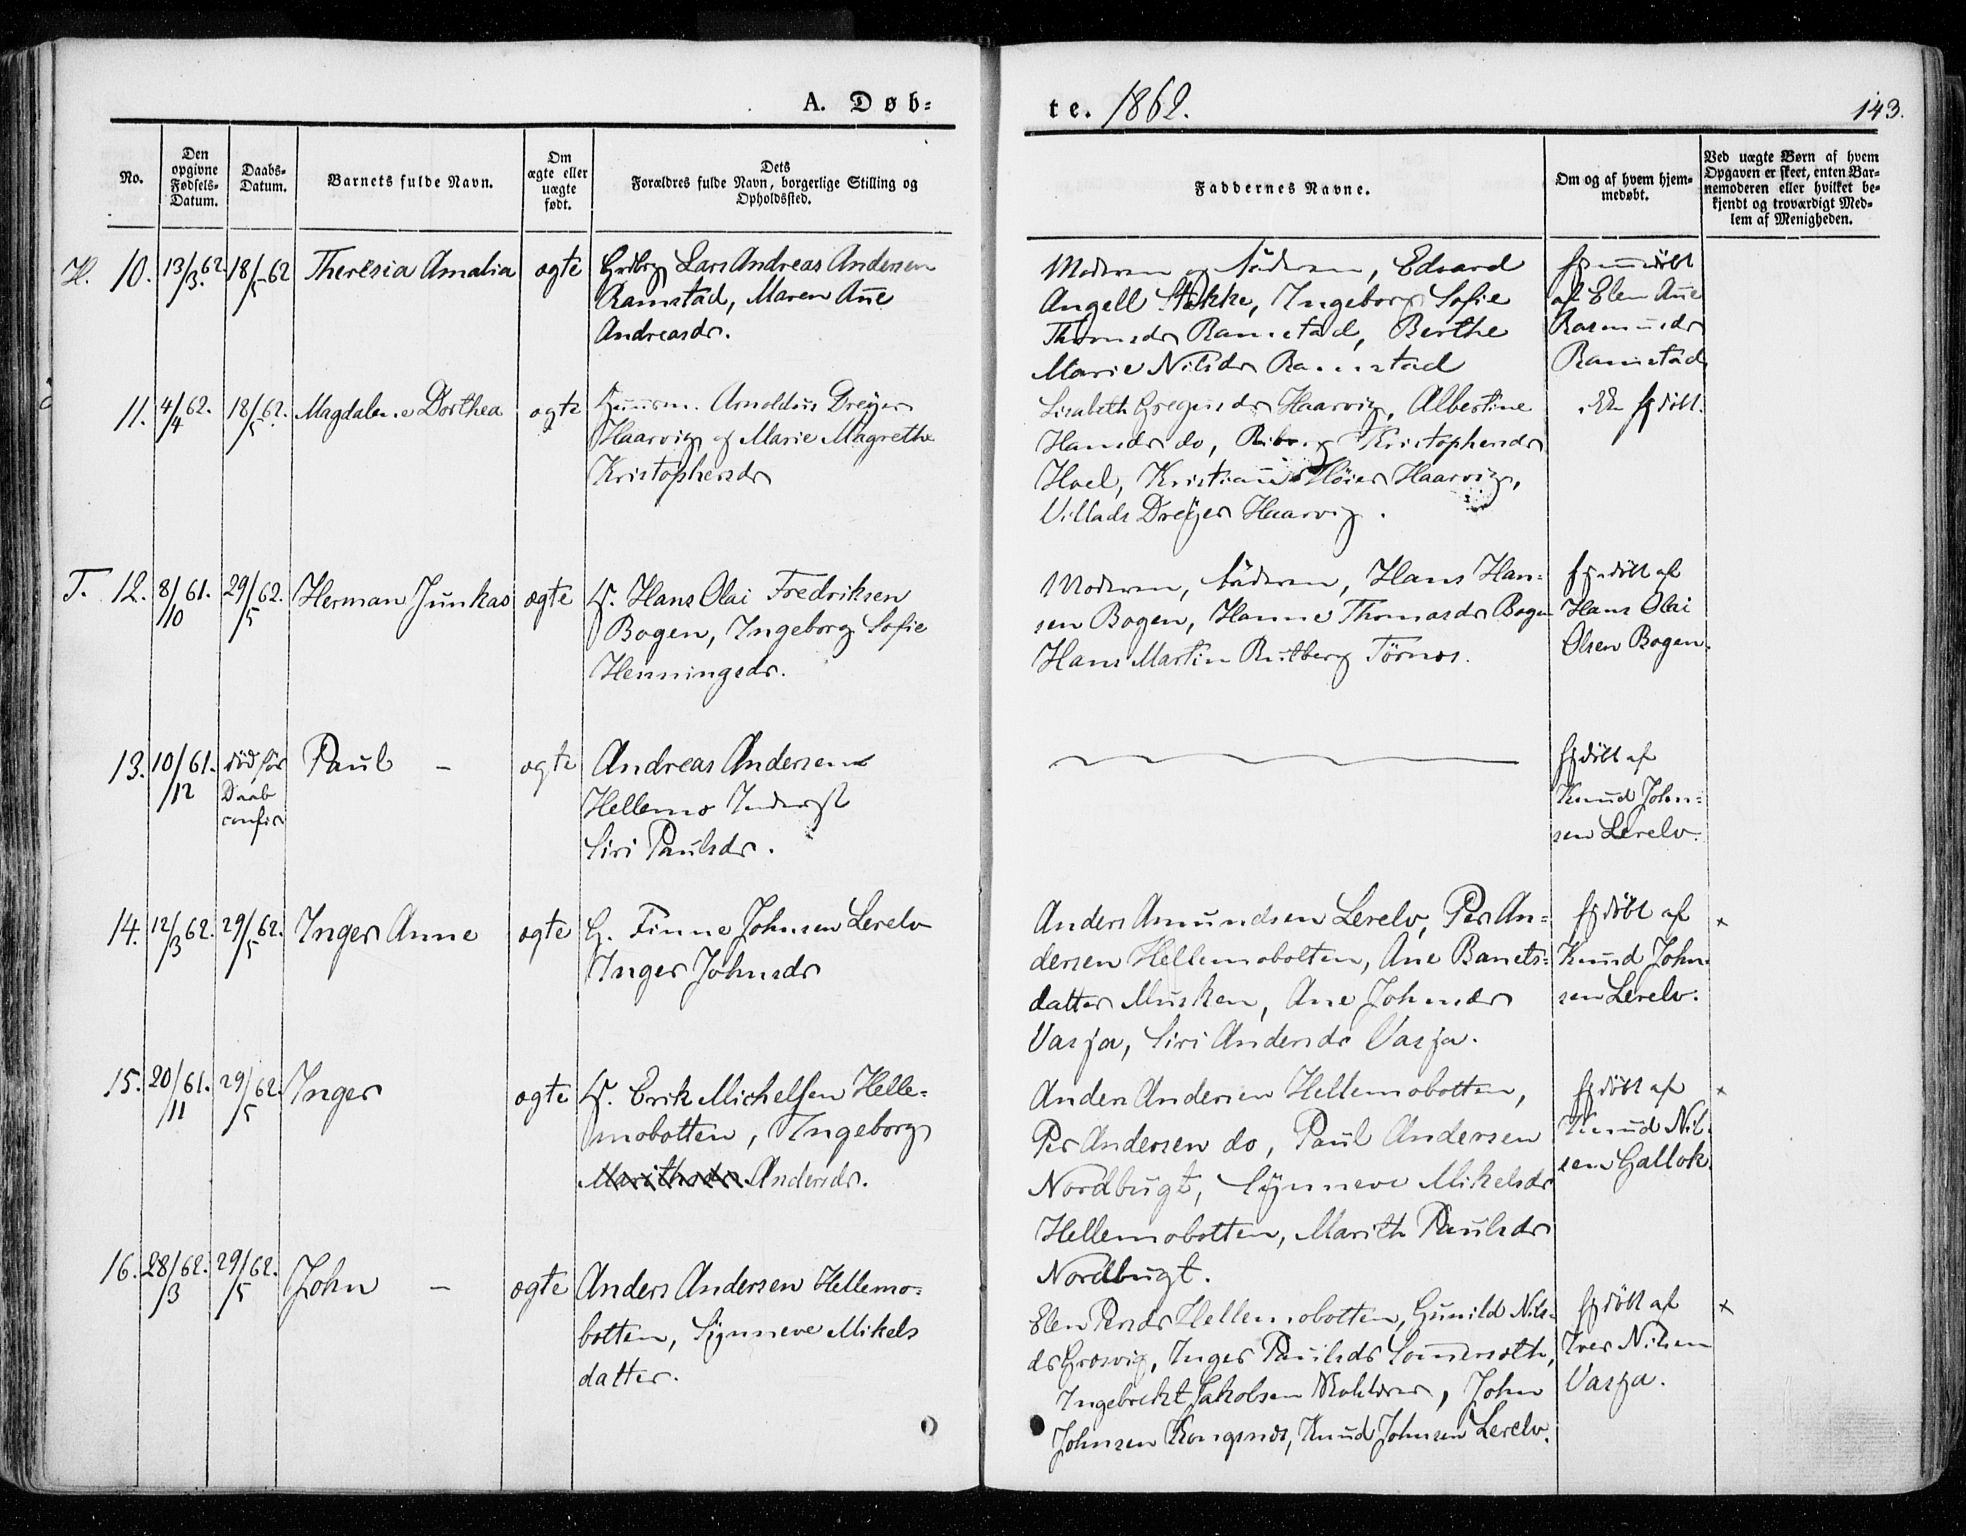 A. Døb=
te. 1862.
143.
No.
Den opgivne Fødsels-Datum.
Daabs-Datum.
Barnets fulde Navn.
Om ægte eller uægte født.
Dets Forældres fulde Navn, borgerlige Stilling og Opholdssted.
Faddernes Navne.
Om og af hvem hjemmedøbt.
Ved uægte Børn af hvem Opgaven er skeet, enten Barnemoderen eller hvilket bekjendt og troværdigt Medlem af Menigheden.
H. 10. 13/3 62 18/5 62 Theresia Amalia ægte Lars Andreas Andersen
Ramstad, Maren Ane
Andreasdr.
Moderen og Faderen, Edvard
Angell Stokke, Ingeborg Sofie
Thomsdr Ramstad, Berthe
Marie Nilsdr Ramstad
hjemmedøbt
af Elen Ane
Rasmusdr
Ramstad
11. 4/4 62. 18/5 62. Magdalene Dorthea ægte Huusm. Arnoldus Dreyer
Haarvig og Marie Magrethe
Kristophersdr
Lisabeth Haarvig, Albertine
Hansdr do, Kristophersdr
Hoel, Høier Haarvig,
Villads Dreyer Haarvig.
hjdøbt.
T. 12. 8/10 61. 29/5 62. Herman Junkas ægte Hans Olai Fredriksen
Bogen, Ingeborg Sofie
Henningsdr.
Moderen, Faderen, Hans Han=
sen Bogen, Hanne Thomasdr Bogen
Hans Martin Rutberg Tørnes.
hjdøbt af
Hans Olai
Olsen Bogen.
13. 10/12 61. død før
Daab
confir
Paul - ægte Andreas Andersen
Hellemo Inderst
Siri Paulsdr.
hjdøbt af
Knud John=
sen Lerelv.
14. 12/3 62. 29/5 62. Inger Anne ægte G. Finne Johnsen Lerelv
Inger Johnsdr
Anders Amundsen Lerelv, Per An=
dersen Hellemobotten, Ane Banets=
datter Musken, Ane Johnsdr
Vasja, Siri Andersdr Vasja.
hjdøbt af
Knud John=
sen Lerelv.
x
15. 20/11 61. 29/5 62. Inger ægte Erik Michelsen Helle=
mobotten, Ingeborg
Andersdr.
Anders Andersen Hellemobotten,
Per Andersen do, Paul Andersen
Nordbugt, Synneve Mikelsdr
Hellemobotten, Marith Paulsdr
Nordbugt.
hjdøbt af
Knud Nil=
sen Gallok.
x
16. 28/3 62. 29/5 62. John - ægte Anders Andersen Hellemo=
botten, Synneve Mikels
datter.
Elen Persdr Hellemobotten, Gunild Nils=
dr Grosvig, Inger Paulsdr
Ingebrekt Jakobsen, John
Johnsen, Knud Johnsen Lerelv.
hjdøbt af
Iver Nilsen
Vasja.
x